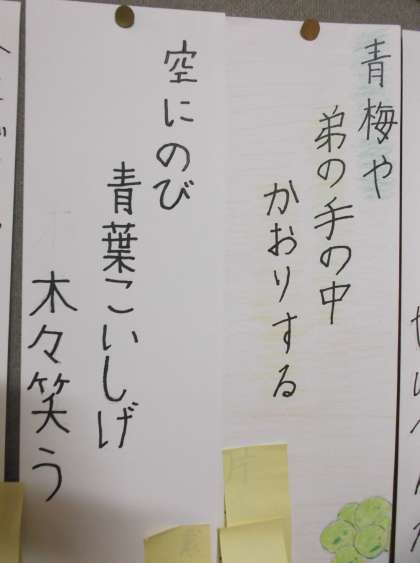 青梅や
弟の手の中
かおりする
空にのび
青葉こいしげ
木々笑う